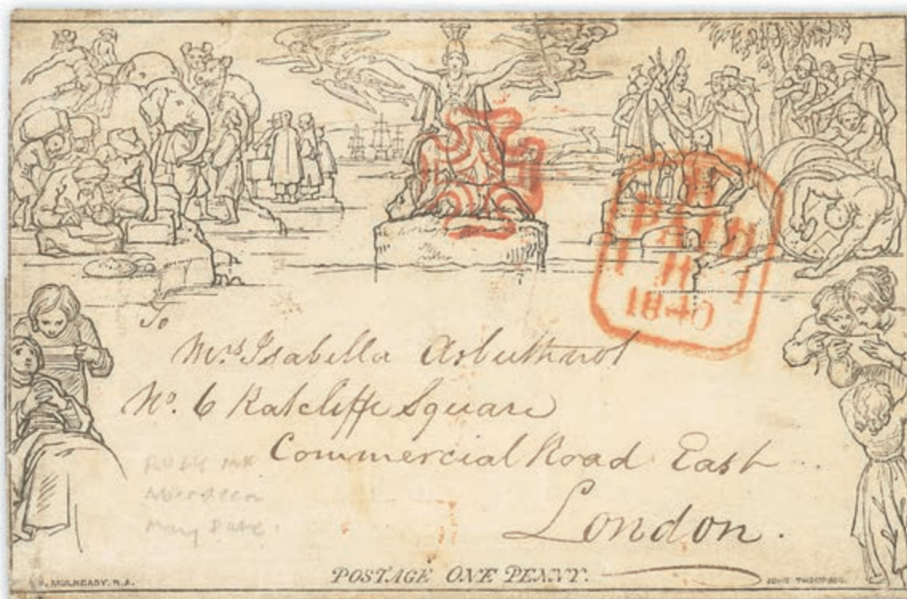 PAID
1840
To
Mrs Isabella Arbuthnot
No. 6 Ratcliffe Square
Commercial Road East
London.
Aberdeen
May Date.
POSTAGE ONE PENNY.
W. MULREADY. R.A.
JOHN THOMPSON